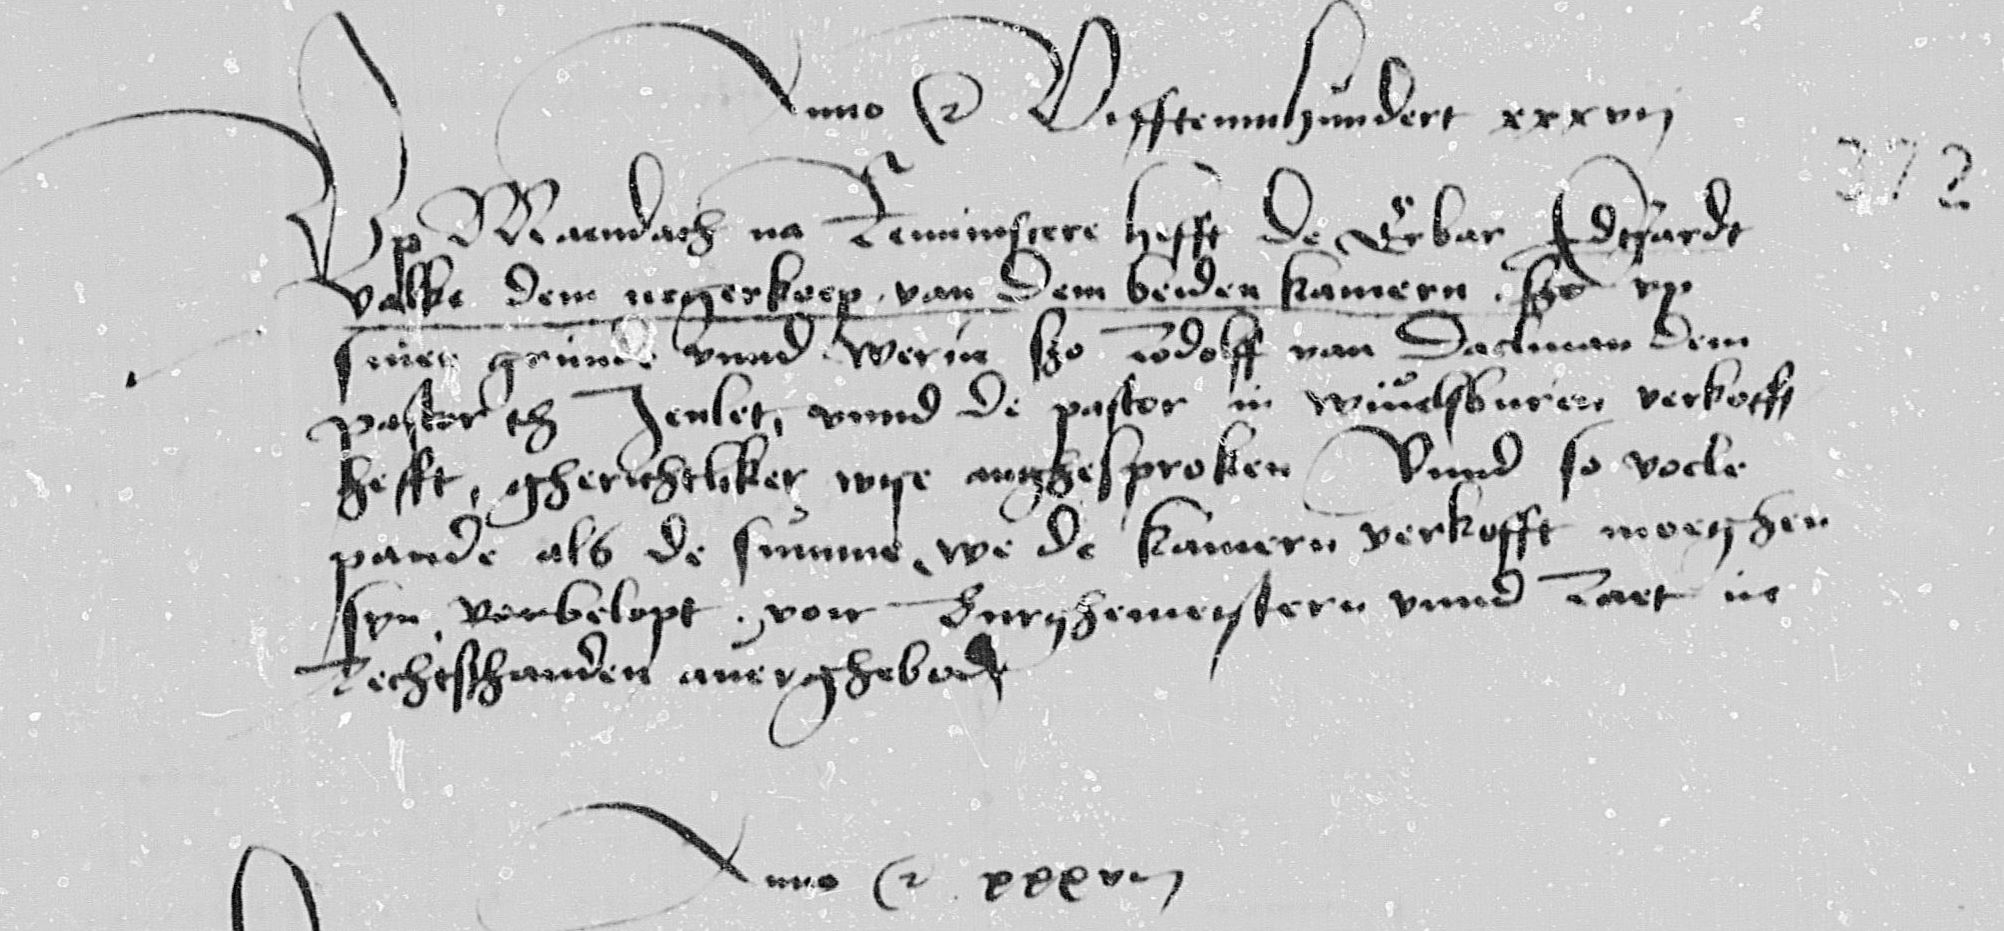 Anno &c Vifftennhundert xxxvij
372
Up Maendach na Reminiscere hefft de Erbar Edtsardt
valke dem negerkoep van dem beiden kamern szo up
siner grunde vnnd Werue szo Rodolff van Dackman dem
pastor th Jenlet, vnnd de pastor in wivelsburen verkofft
hefft, gherichtliker wyse anghesproken Vnnd so voele
pande als de summe, we de kamern verkofft moeghen
syn, verbelopt, vor Burghemeystern vnnd Raet in
Rechtshanden auerghebod
Anno &c xxxvij